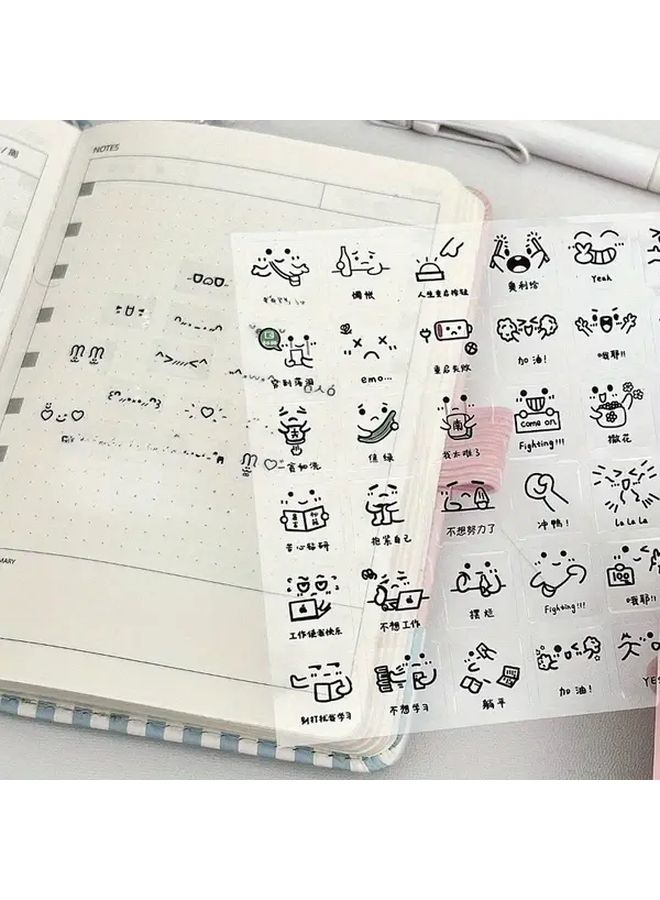 / 周
NOTES
MARY
惆怅
人生重启按钮
奥利给
Yeah
emo...
重启失败
加油!
哦耶!!
一贫如洗
焦绿
南
我太难了
come on
Fighting!!!
撒花
苦心钻研
抱紧自己
不想努力了
冲鸭!
la la la
工作使我快乐
不想工作
摆烂
Fighting!!!
100
哦耶!!
别打扰我学习
不想学习
躺平
加油!